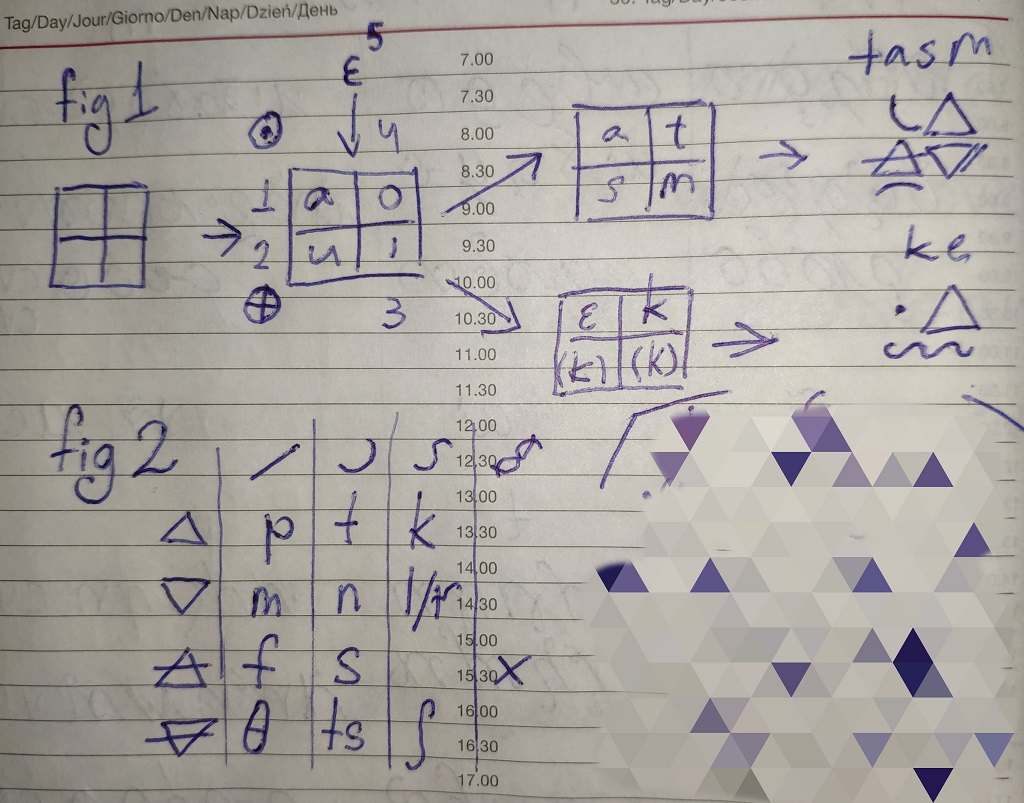 Tag/Day/Jour/Giorno/Den/Nap/Dzień/День
fig 1
5
ε
4
1
2
3
a o
u i
a t
s m
tasm
ε k
(k) (k)
ke
7.00
7.30
8.00
8.30
9.00
9.30
10.00
10.30
11.00
11.30
12.00
12.30
13.00
13.30
14.00
14.30
15.00
15.30
16.00
16.30
17.00
fig 2
p t k
m n l/r
f s x
θ ts ʃ